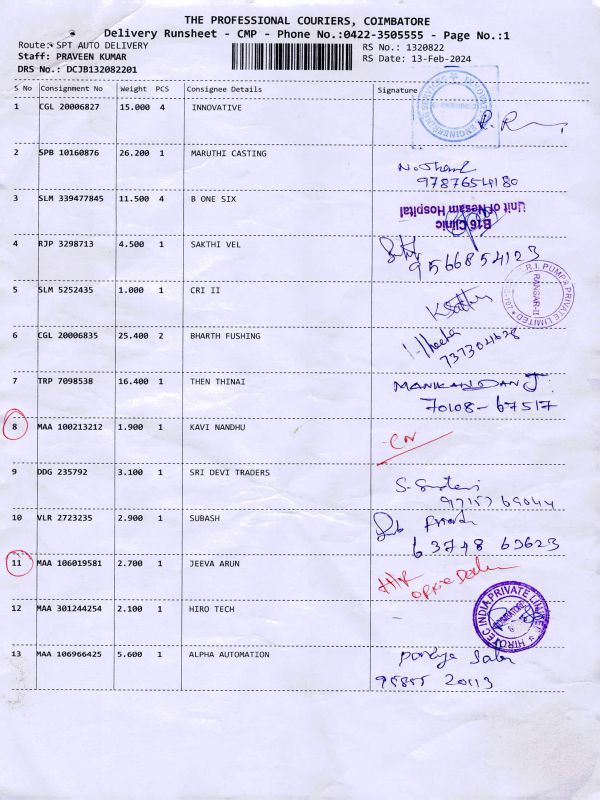 THE PROFESSIONAL COURIERS, COIMBATORE
Delivery Runsheet - CMP - Phone No.:0422-3505555 - Page No.:1
Route: SPT AUTO DELIVERY
RS No.: 1320822
Staff: PRAVEEN KUMAR
RS Date: 13-Feb-2024
DRS No.: DCJB132082201
S No Consignment No Weight PCS Consignee Details Signature
1 CGL 20006827 15.000 4 INNOVATIVE
2 SPB 10160876 26.200 1 MARUTHI CASTING
9787654180
3 SLM 339477845 11.500 4 B ONE SIX
B16 Clinic
Unit of Nesam Hospital
4 RJP 3298713 4.500 1 SAKTHI VEL
9566854123
5 SLM 5252435 1.000 1 CRI II
R.I. PUMPS PRIVATE LIMITED
RANGAR-II
6 CGL 20006835 25.400 2 BHARTH FUSHING
7 TRP 7098538 16.400 1 THEN THINAI
MANIKANDAN J
70108-67517
8 MAA 100213212 1.900 1 KAVI NANDHU
9 DDG 235792 3.100 1 SRI DEVI TRADERS
10 VLR 2723235 2.900 1 SUBASH
11 MAA 106019581 2.700 1 JEEVA ARUN
12 MAA 301244254 2.100 1 HIRO TECH
HIROTEC INDIA PRIVATE LIMITED
13 MAA 106966425 5.600 1 ALPHA AUTOMATION
20113